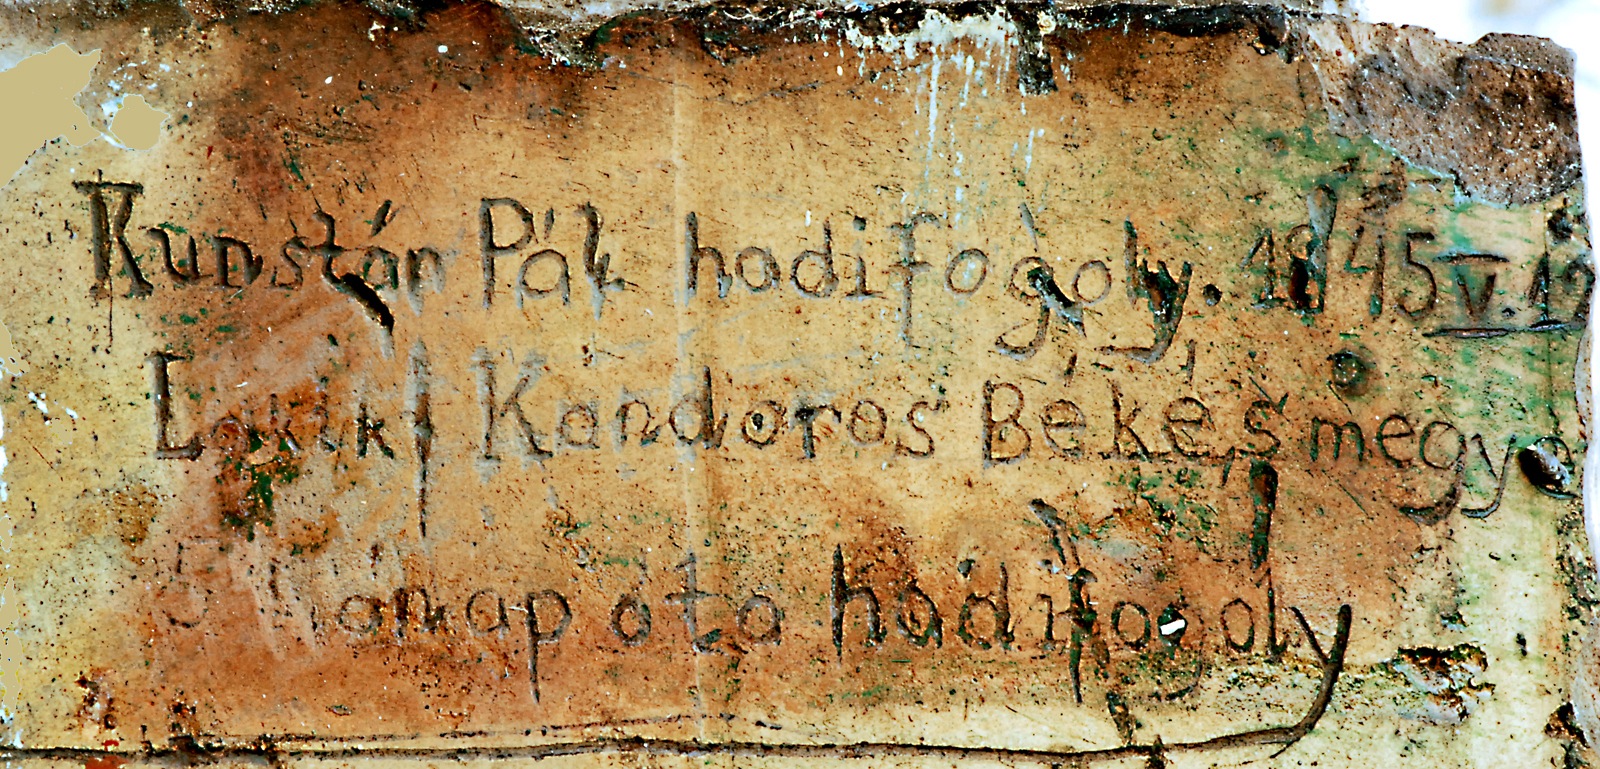 Kunstán Pál hadifogoly. 1945 V. 12
Lakik Kondoros Békés megye
5 hónap óta hadifogoly